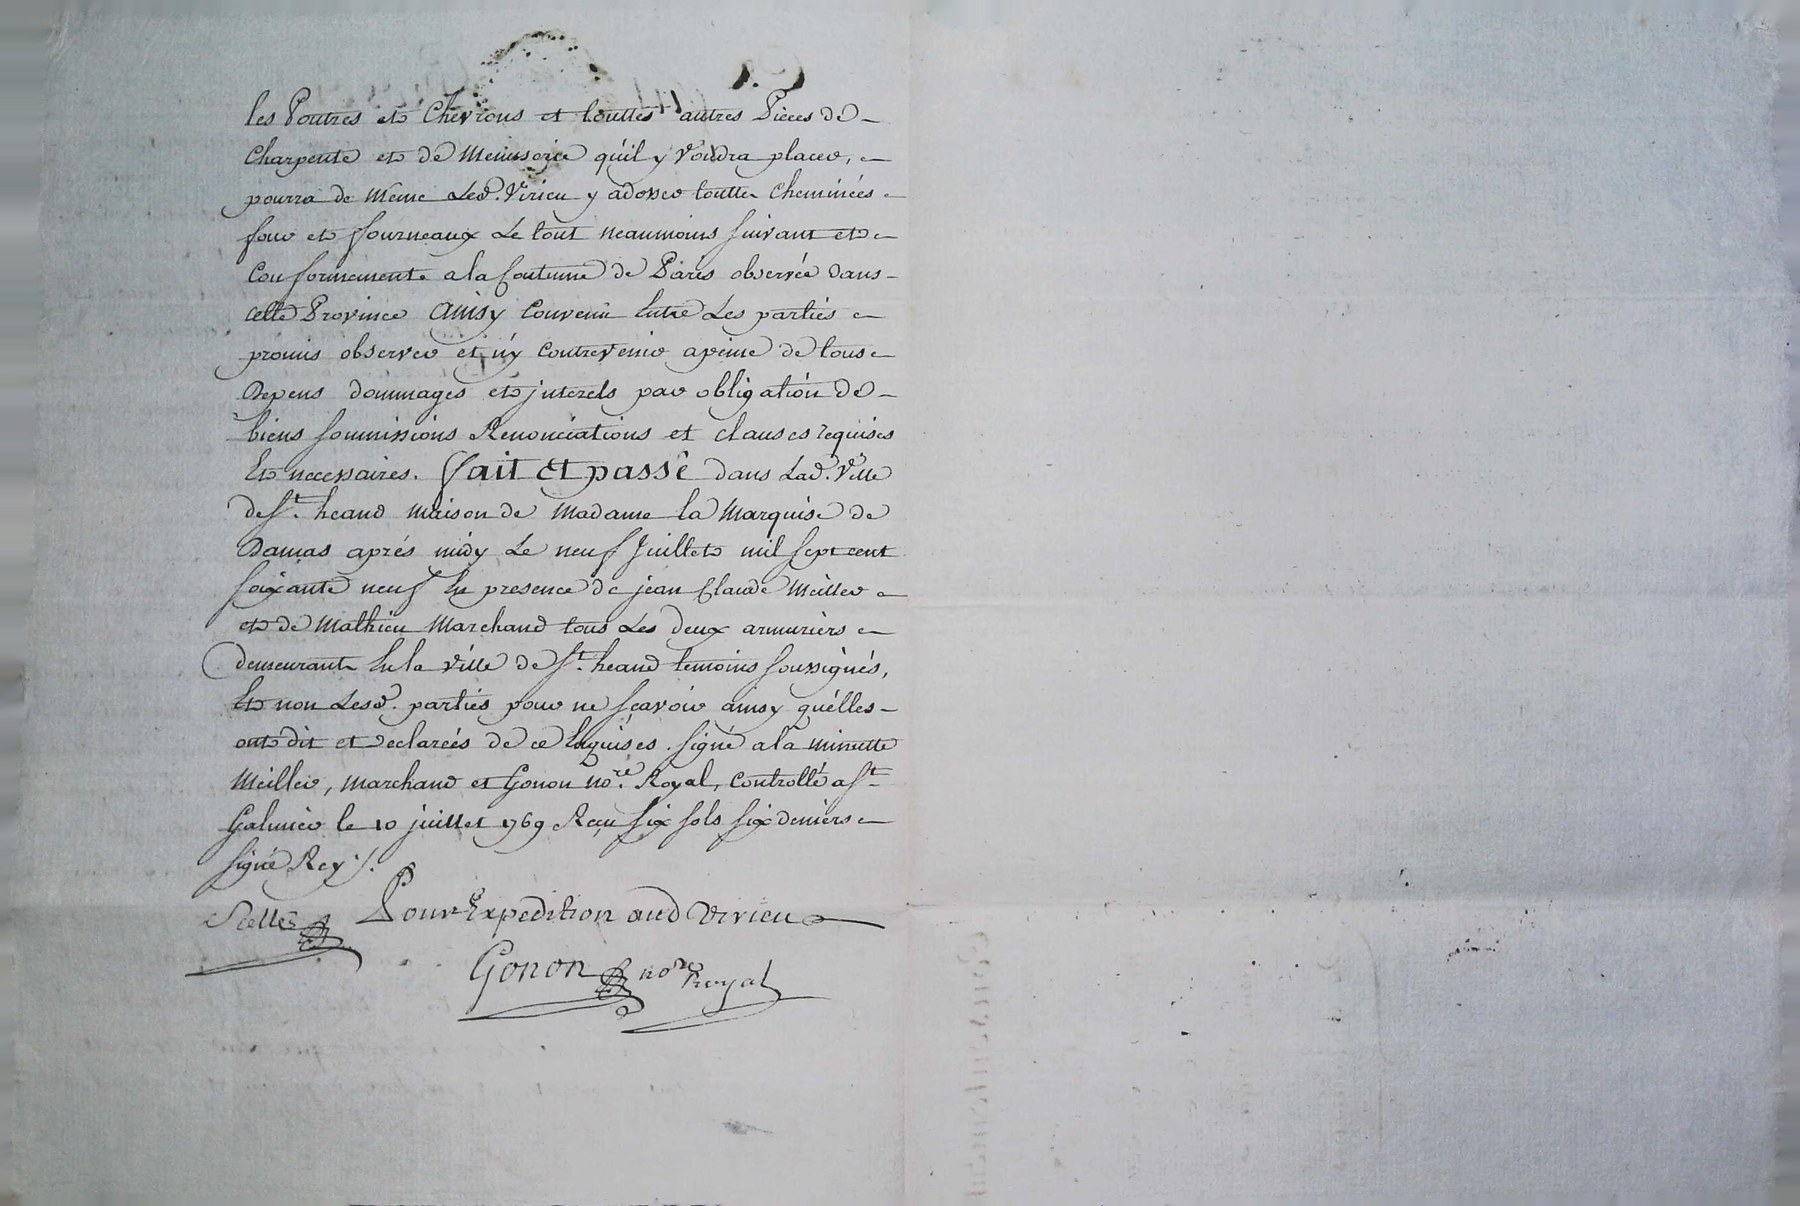 les Poutres et Chevrons et touttes autres Pieces de
Charpente et de Menuiserie qu'il y voudra placer,
pourra de meme Led. Virieu y adosser toutte Cheminées
four et fourneaux Le tout neaumoins suivant et
Conformement a la Coutume de Paris observée dans
cette Province Ainsy Convenu Entre Les parties
promis observer et n'y Contrevenir apeine de tous
Depens dommages et interets par obligation de
biens soumissions Renonciations et clauses requises
Et necessaires. fait et passé dans Lad. Ville
de St. heand Maison de Madame la Marquise de
Damas aprés midy Le neuf Juillet mil sept cent
soixante neuf En presence de jean Claude Meiller
et de Mathieu Marchand tous Les deux armuriers
demeurant En la ville de St. heand temoins soussignés,
Et non Lesd. parties pour ne scavoir ainsy qu'elles
ont dit et declareés de ce Enquises. signé a la minutte
Meiller, Marchand et Gonon nore. Royal, Controllé a St
Galmier le 10 juillet 1769 Reçu six sols six deniers
signé Rey ./.
Scellé Pour Expedition aud Virieu
Gonon nore Royal